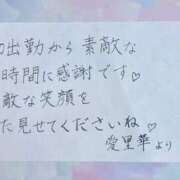 の出勤から 素敵な
時間に感謝です♡
敵な笑顔を
た見せてくださいね♡
愛里華より